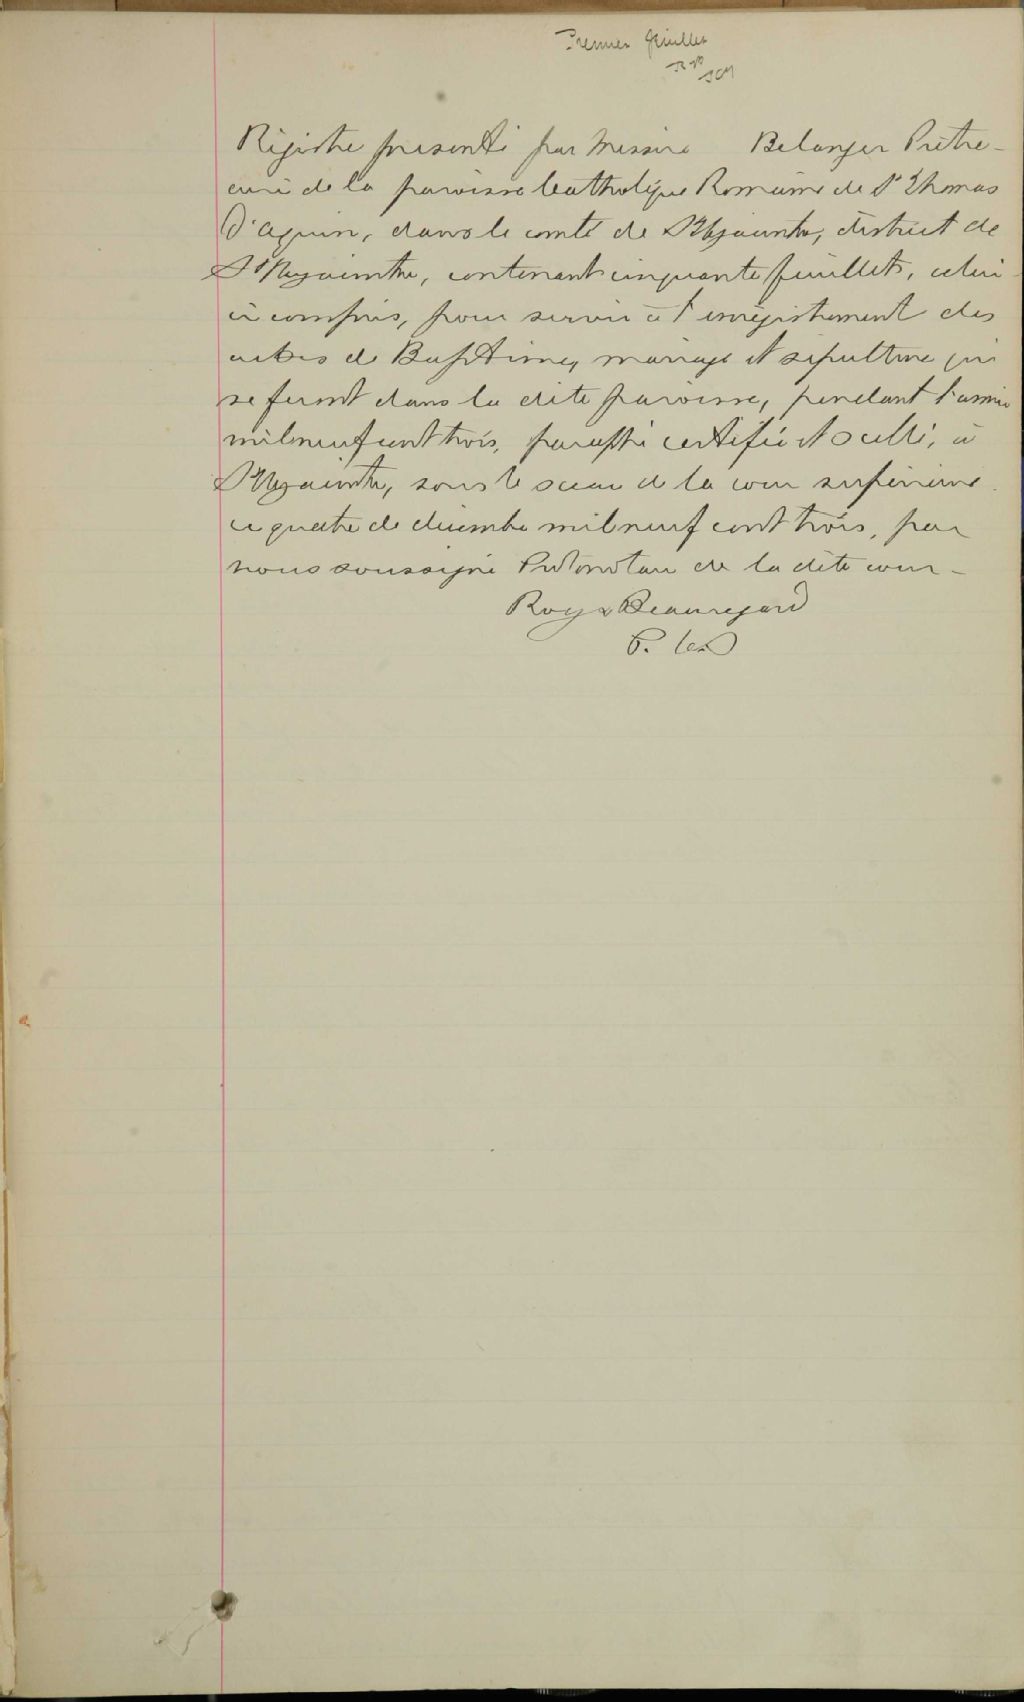 Premier feuillet
Régistre presenté par Messire Belanger Prêtre-
curé de la paroisse Catholique Romaine de St Thomas
D'aquin, dans le comté de St Hyacinthe, district de
St Hyacinthe, contenant cinquante feuillets, celui
ci compris, pour servir à l'enrégistrement des
actes de Baptême, mariage et sépulture qui
se feront dans la dite paroisse, pendant l'année
mil neuf cent trois, paraphé certifié et scellé, à
St Hyacinthe, sous le sceau de la cour supérieure
ce quatre de décembre mil neuf cent trois, par
nous soussigné Protonotaire de la dite cour -
Roy & Beauregard
P. C. S